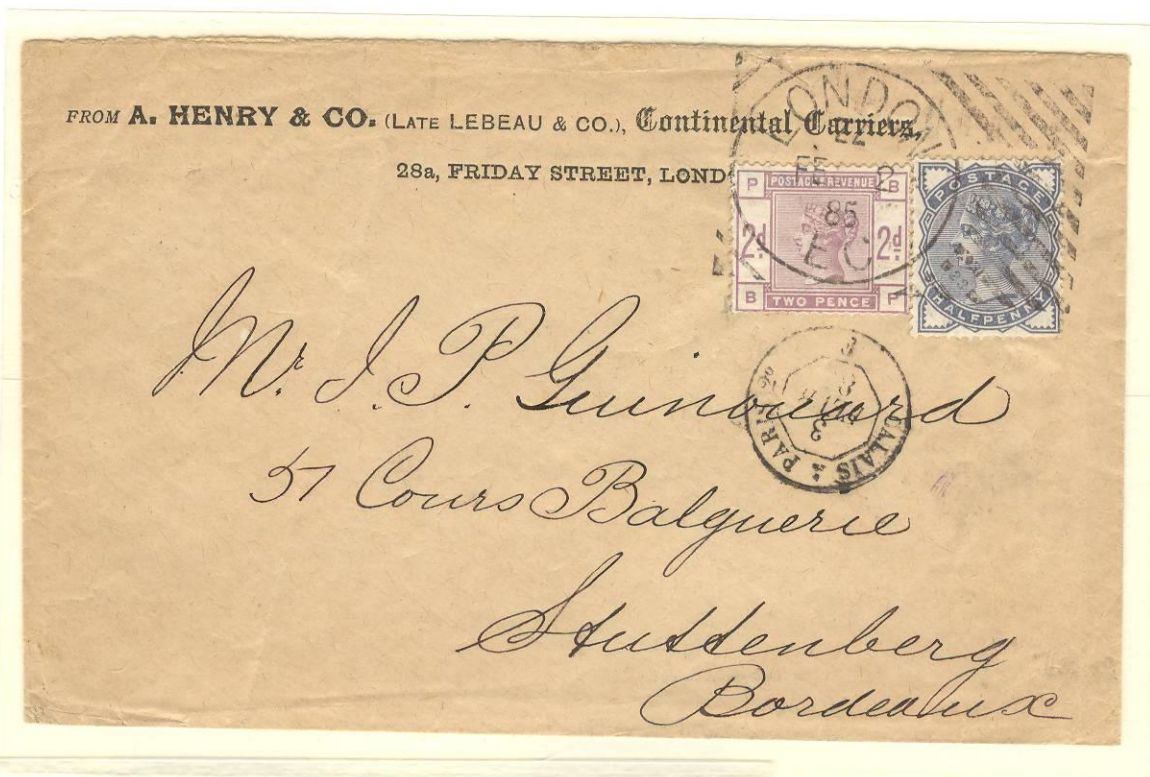 FROM A. HENRY & CO. (LATE LEBEAU & CO.), Continental Carriers,
28a, FRIDAY STREET, LOND
LONDON
FE 2
85
EC
P POSTAGE & REVENUE B
2d 2d
B TWO PENCE P
POSTAGE
HALFPENNY
CALAIS A PARIS
3
Mr. J. P. Guinouard
57 Cours Balguerie
Stuttenberg
Bordeaux